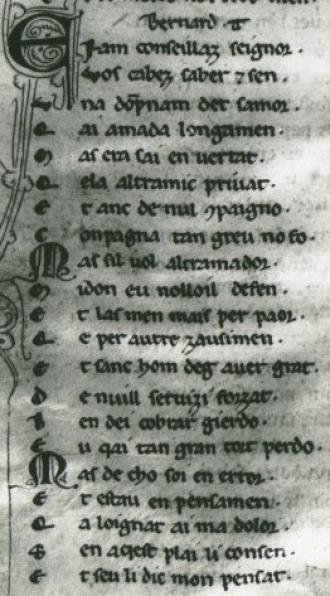 Bernard. T
Eram conseillaz seignor.
Vos cabez saber 7 sen.
Una dopnam det samor.
Q ai amada longamen.
M as era sai en uertat.
Q ela altramic priuat.
E t anc de nul 9paigno.
C onpagna tan greu no fo.
M as sil uol altramador.
M idon eu nolloil defen.
E t las men mais per paor.
Q e per autre zausimen.
E t sanc hom deg auer grat.
D e nuill seruizi forzat.
B en dei cobrar gierdo.
E u qai tan gran tort perdo.
M as de cho soi en error.
E t estau en pensamen.
Q a loignat ai ma dolor.
S en aqest plai li consen.
E t seu li dic mon pensat.